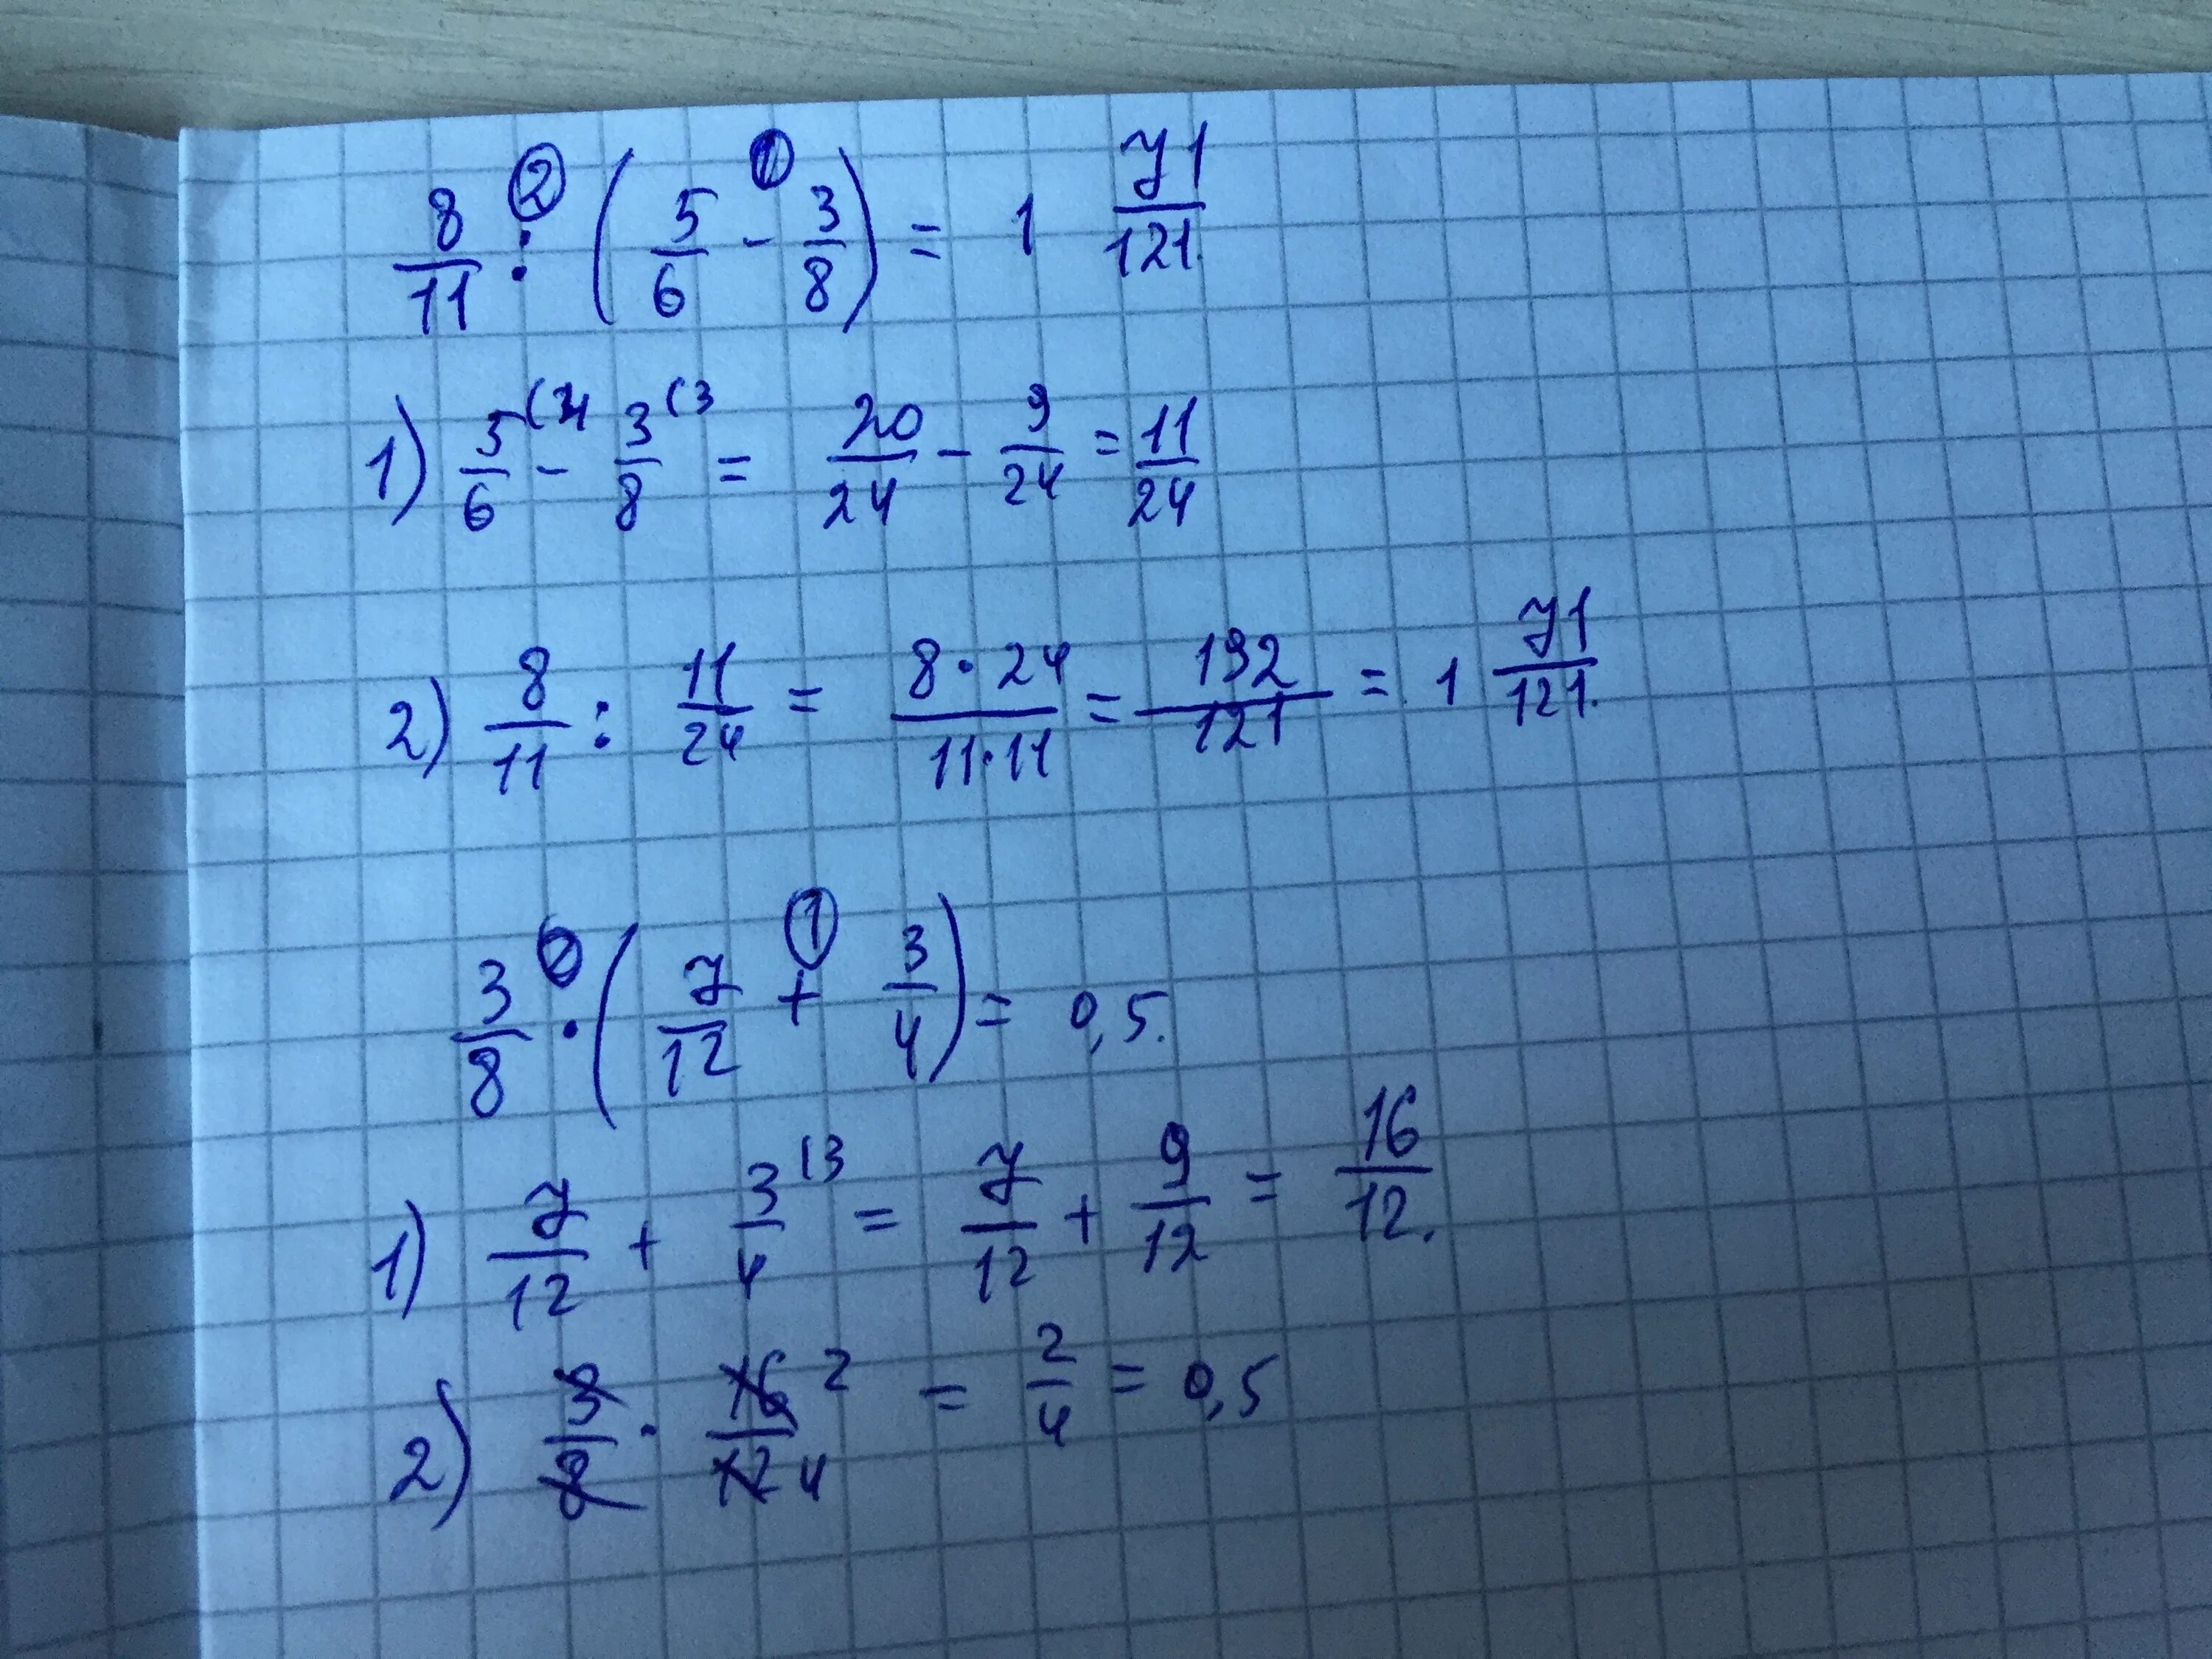 8/11 : ② (5/6 - ① 3/8) = 1 71/121.
1) 5/6 (4 - 3/8 (3 = 20/24 - 9/24 = 11/24
2) 8/11 : 11/24 = 8·24/11·11 = 192/121 = 1 71/121.
3/8 · ② (7/12 + ① 3/4) = 0,5.
1) 7/12 + 3/4 (3 = 7/12 + 9/12 = 16/12.
2) 3/8 · 16/12 2/4 = 2/4 = 0,5